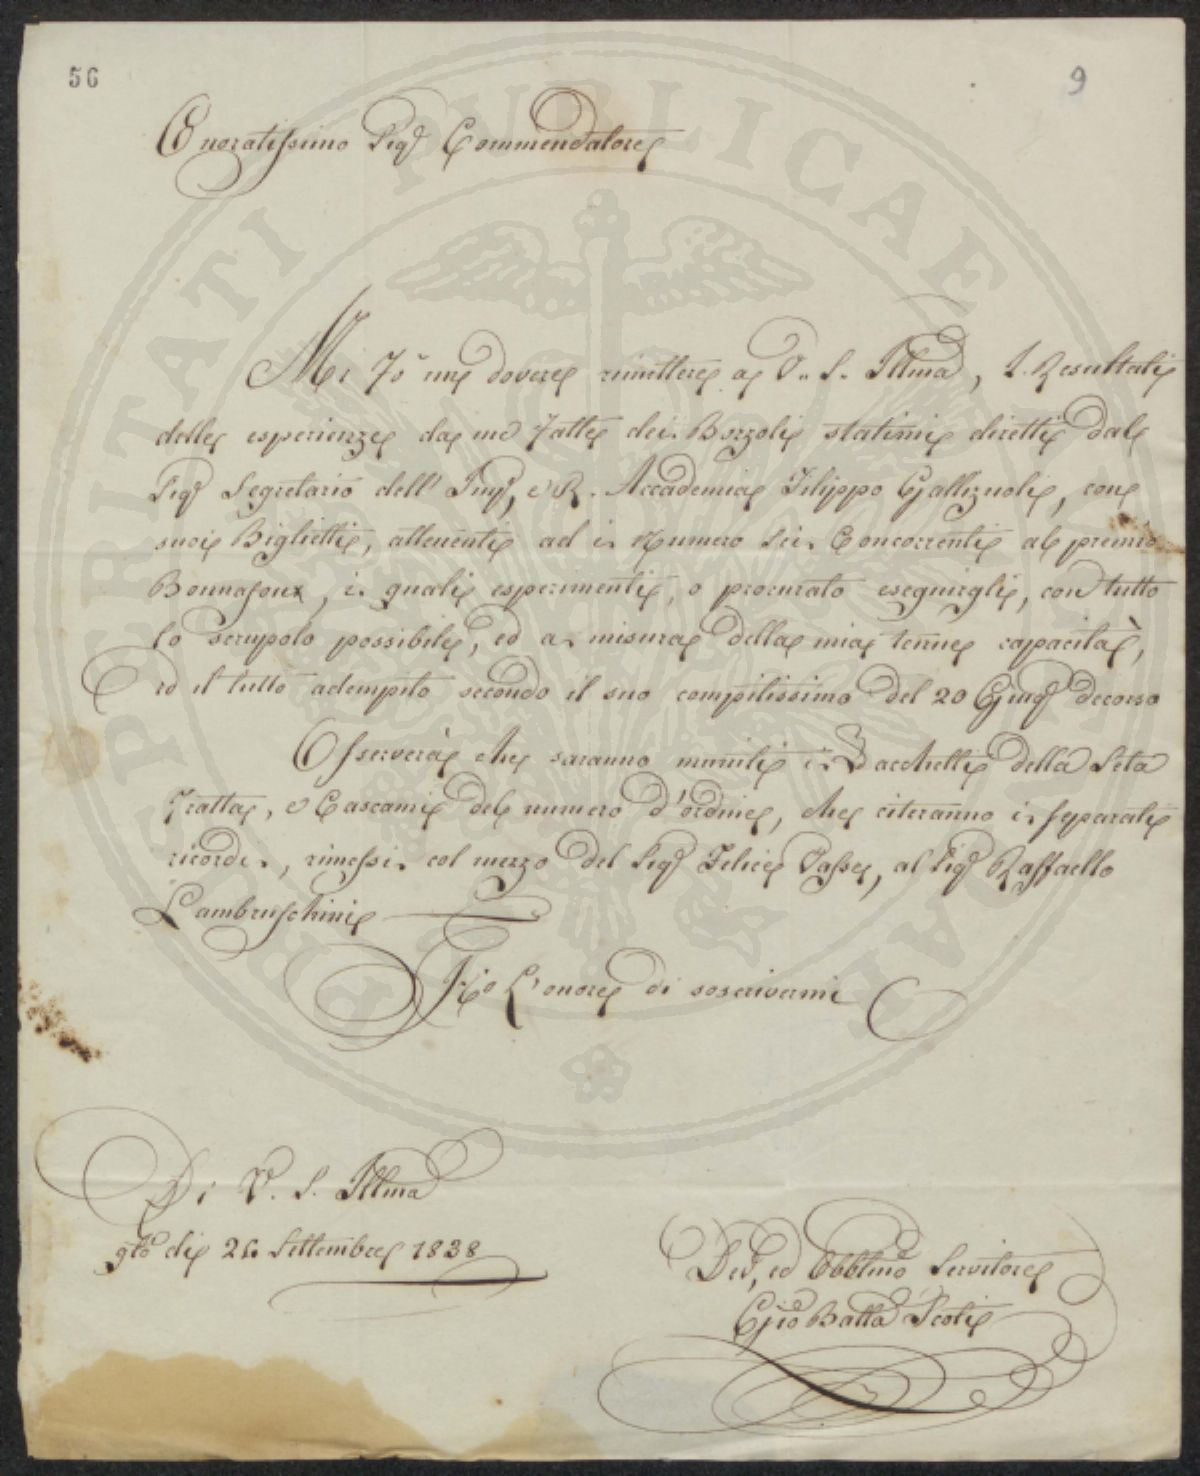 56
9
Onoratissimo Sigr Commendatore
Mi fò un dovere rimettere a V. S. Illma, I. Resultati
delle esperienze da me fatte dei Bozzoli statimi diretti dal
Sigr Segretario dell' Imp, e R. Accademia Filippo Gallizioli, con
suoi Biglietti, attenenti ad i. Numero sei Concorrenti al premio
Bonnafoux, i. quali esperimenti, o procurato eseguirgli, con tutto
lo scrupolo possibile, ed a misura della mia tenue capacità,
ed il tutto adempito secondo il suo compitissimo del 20 Giugo decorso
Osserverà che saranno muniti i. Sacchetti della Seta
Tratta, e Cascami del numero d'ordine, che citeranno i. separati
ricordi, rimessi col mezzo del Sigr Felice Vasse, al Sigr Raffaello
Lambruschini
Ho L'onore di soscrivermi
Di V. S. Illma
gto di 25. Settembre 1838
Devo, ed Obblmo Servitore
Gio Batta Scoti
PROSPERITATI PUBLICAE AUGENDAE